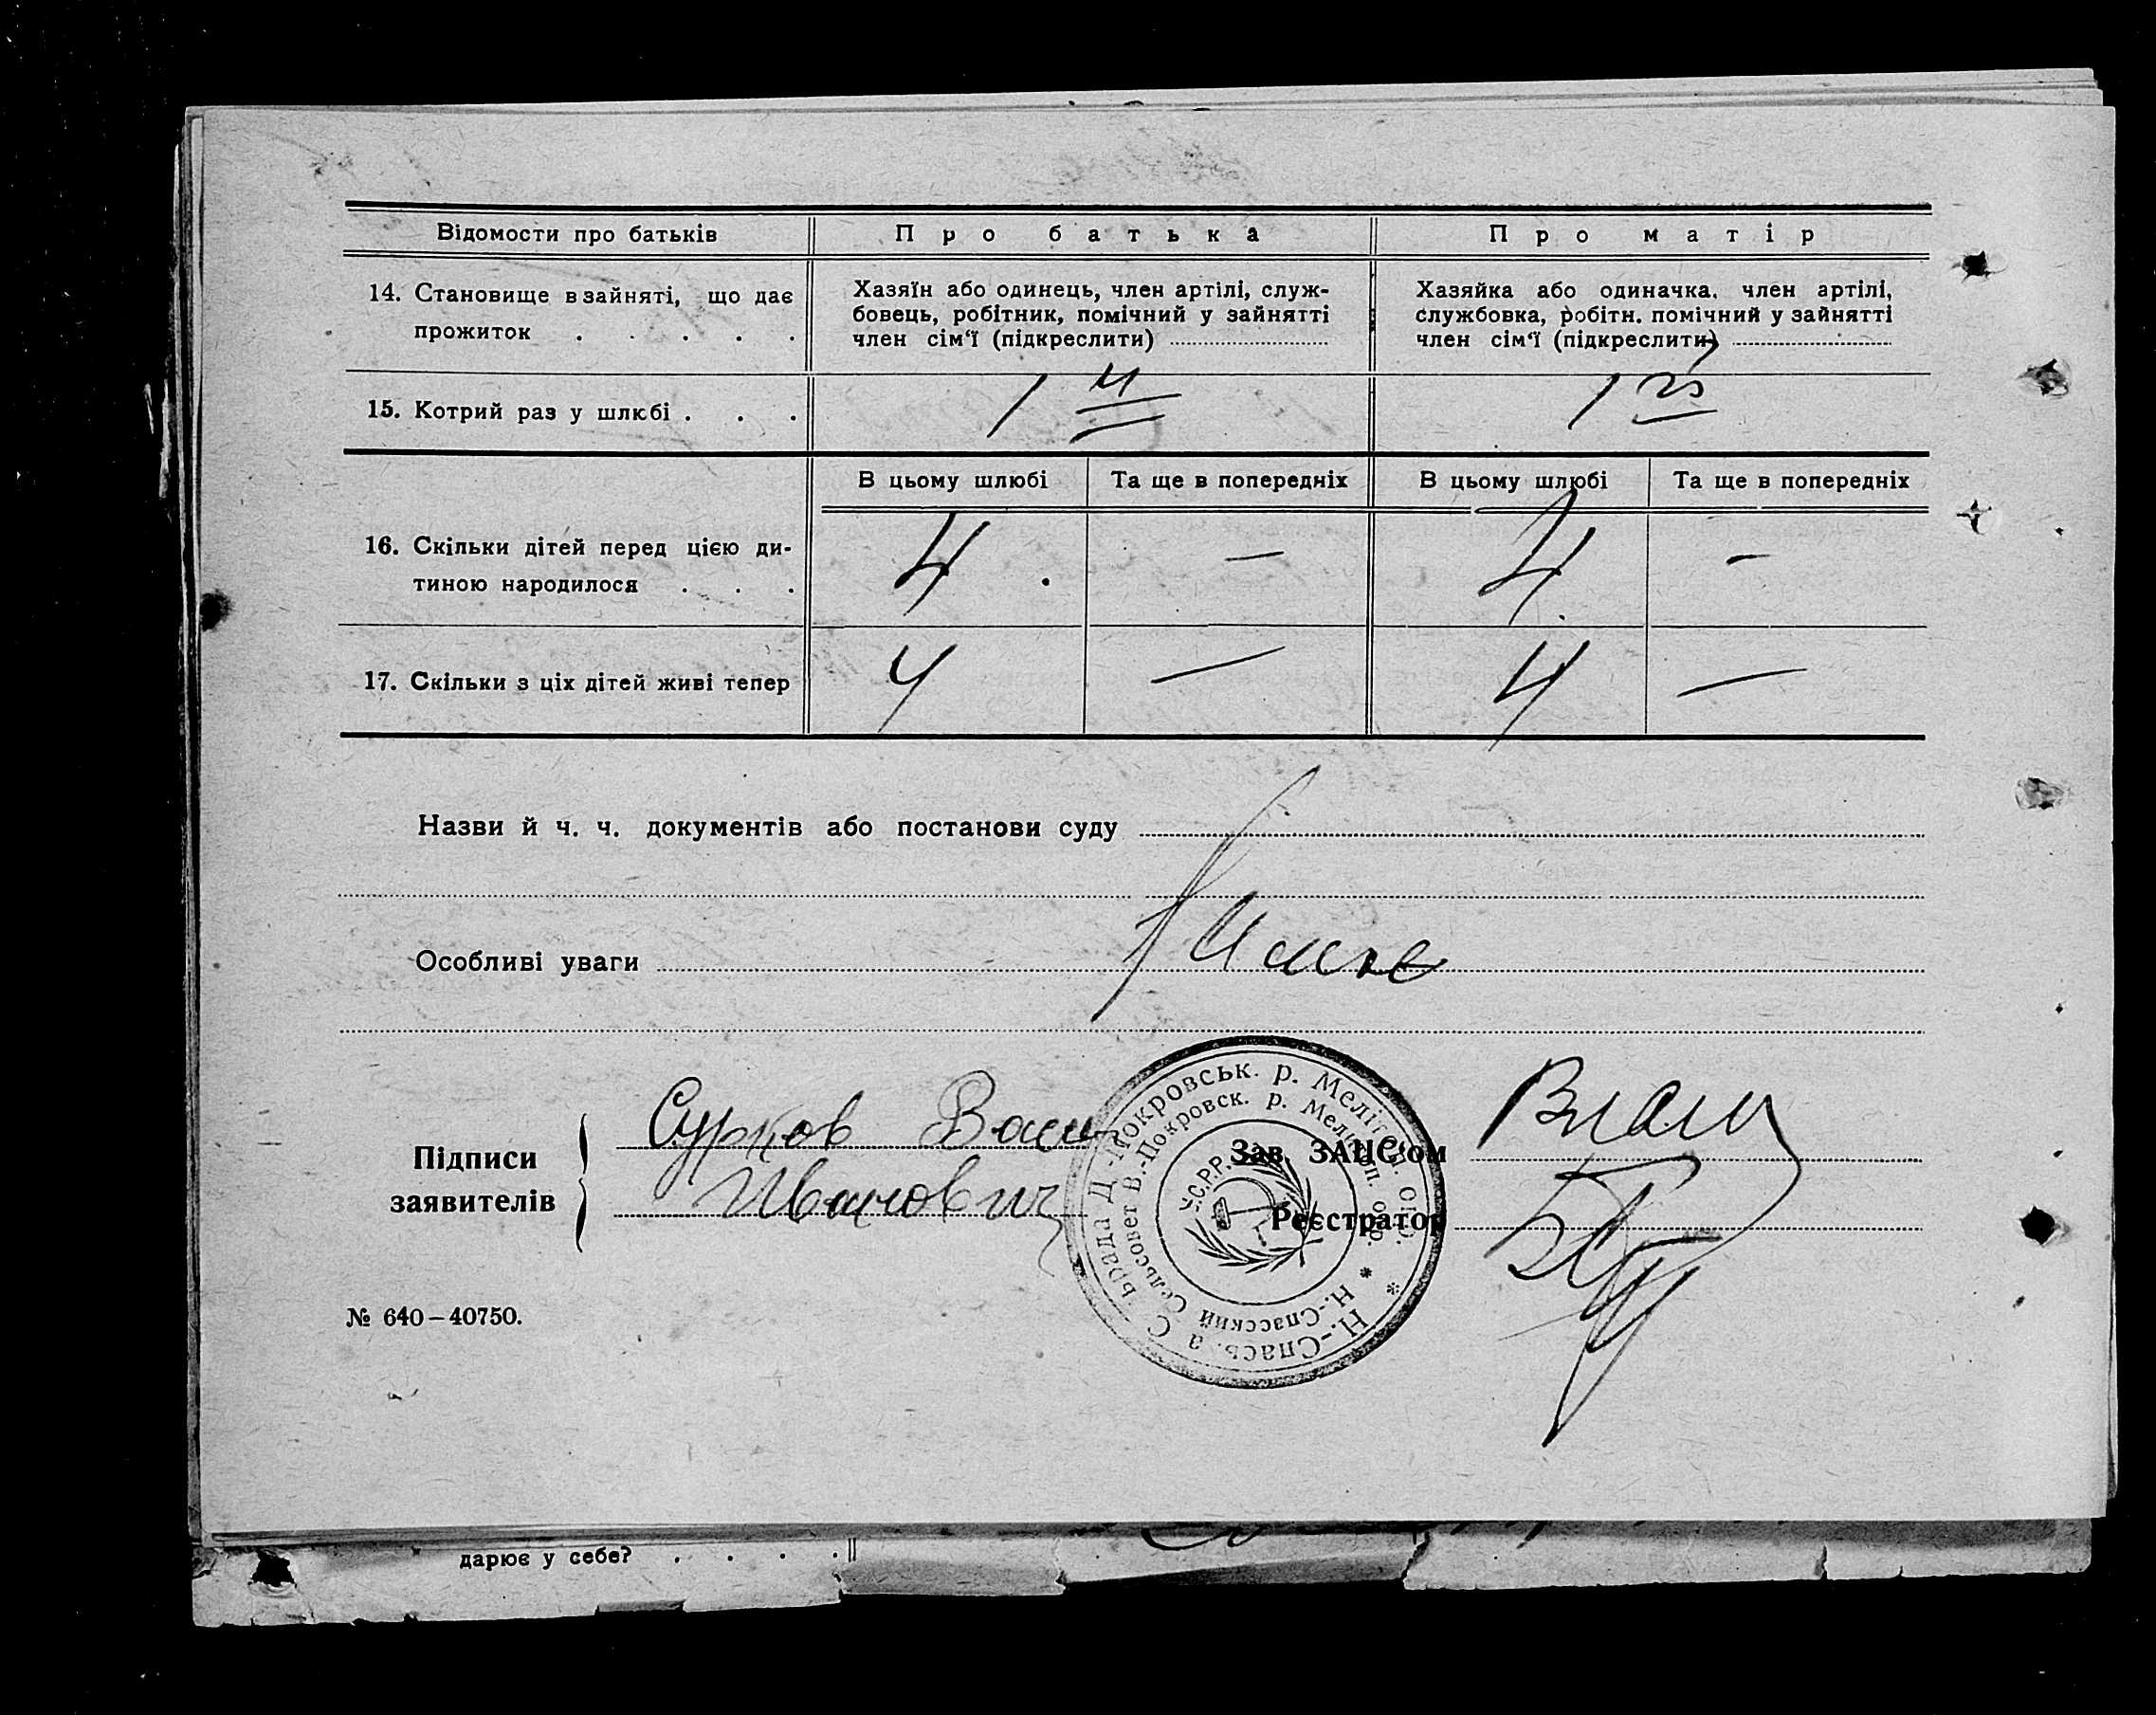 Відомости про батьків
Про батька
Про матір
14. Становище в зайняті, що дає
прожиток . . . . .
Хазяїн або одинець, член артілі, служ-
бовець, робітник, помічний у зайнятті
член сім‘ї (підкреслити)
Хазяйка або одиначка, член артілі,
службовка, робітн. помічний у зайнятті
член сім‘ї (підкреслити)
15. Котрий раз у шлюбі . . .
1й
1й
В цьому шлюбі
Та ще в попередніх
В цьому шлюбі
Та ще в попередніх
16. Скільки дітей перед цією ди-
тиною народилося . . .
4
—
4
—
17. Скільки з ціх дітей живі тепер
4
—
4
—
Назви й ч. ч. документів або постанови суду
Особливі уваги
Підписи
заявителів
Сурков Васи
Иванович
Зав. ЗАЦС‘ом
Реєстратор
У.С.Р.Р.
Н.-Спасский Сельсовет В.-Покровск. р. Мелитоп. окр.
№ 640–40750.
дарює у себе? . . . .